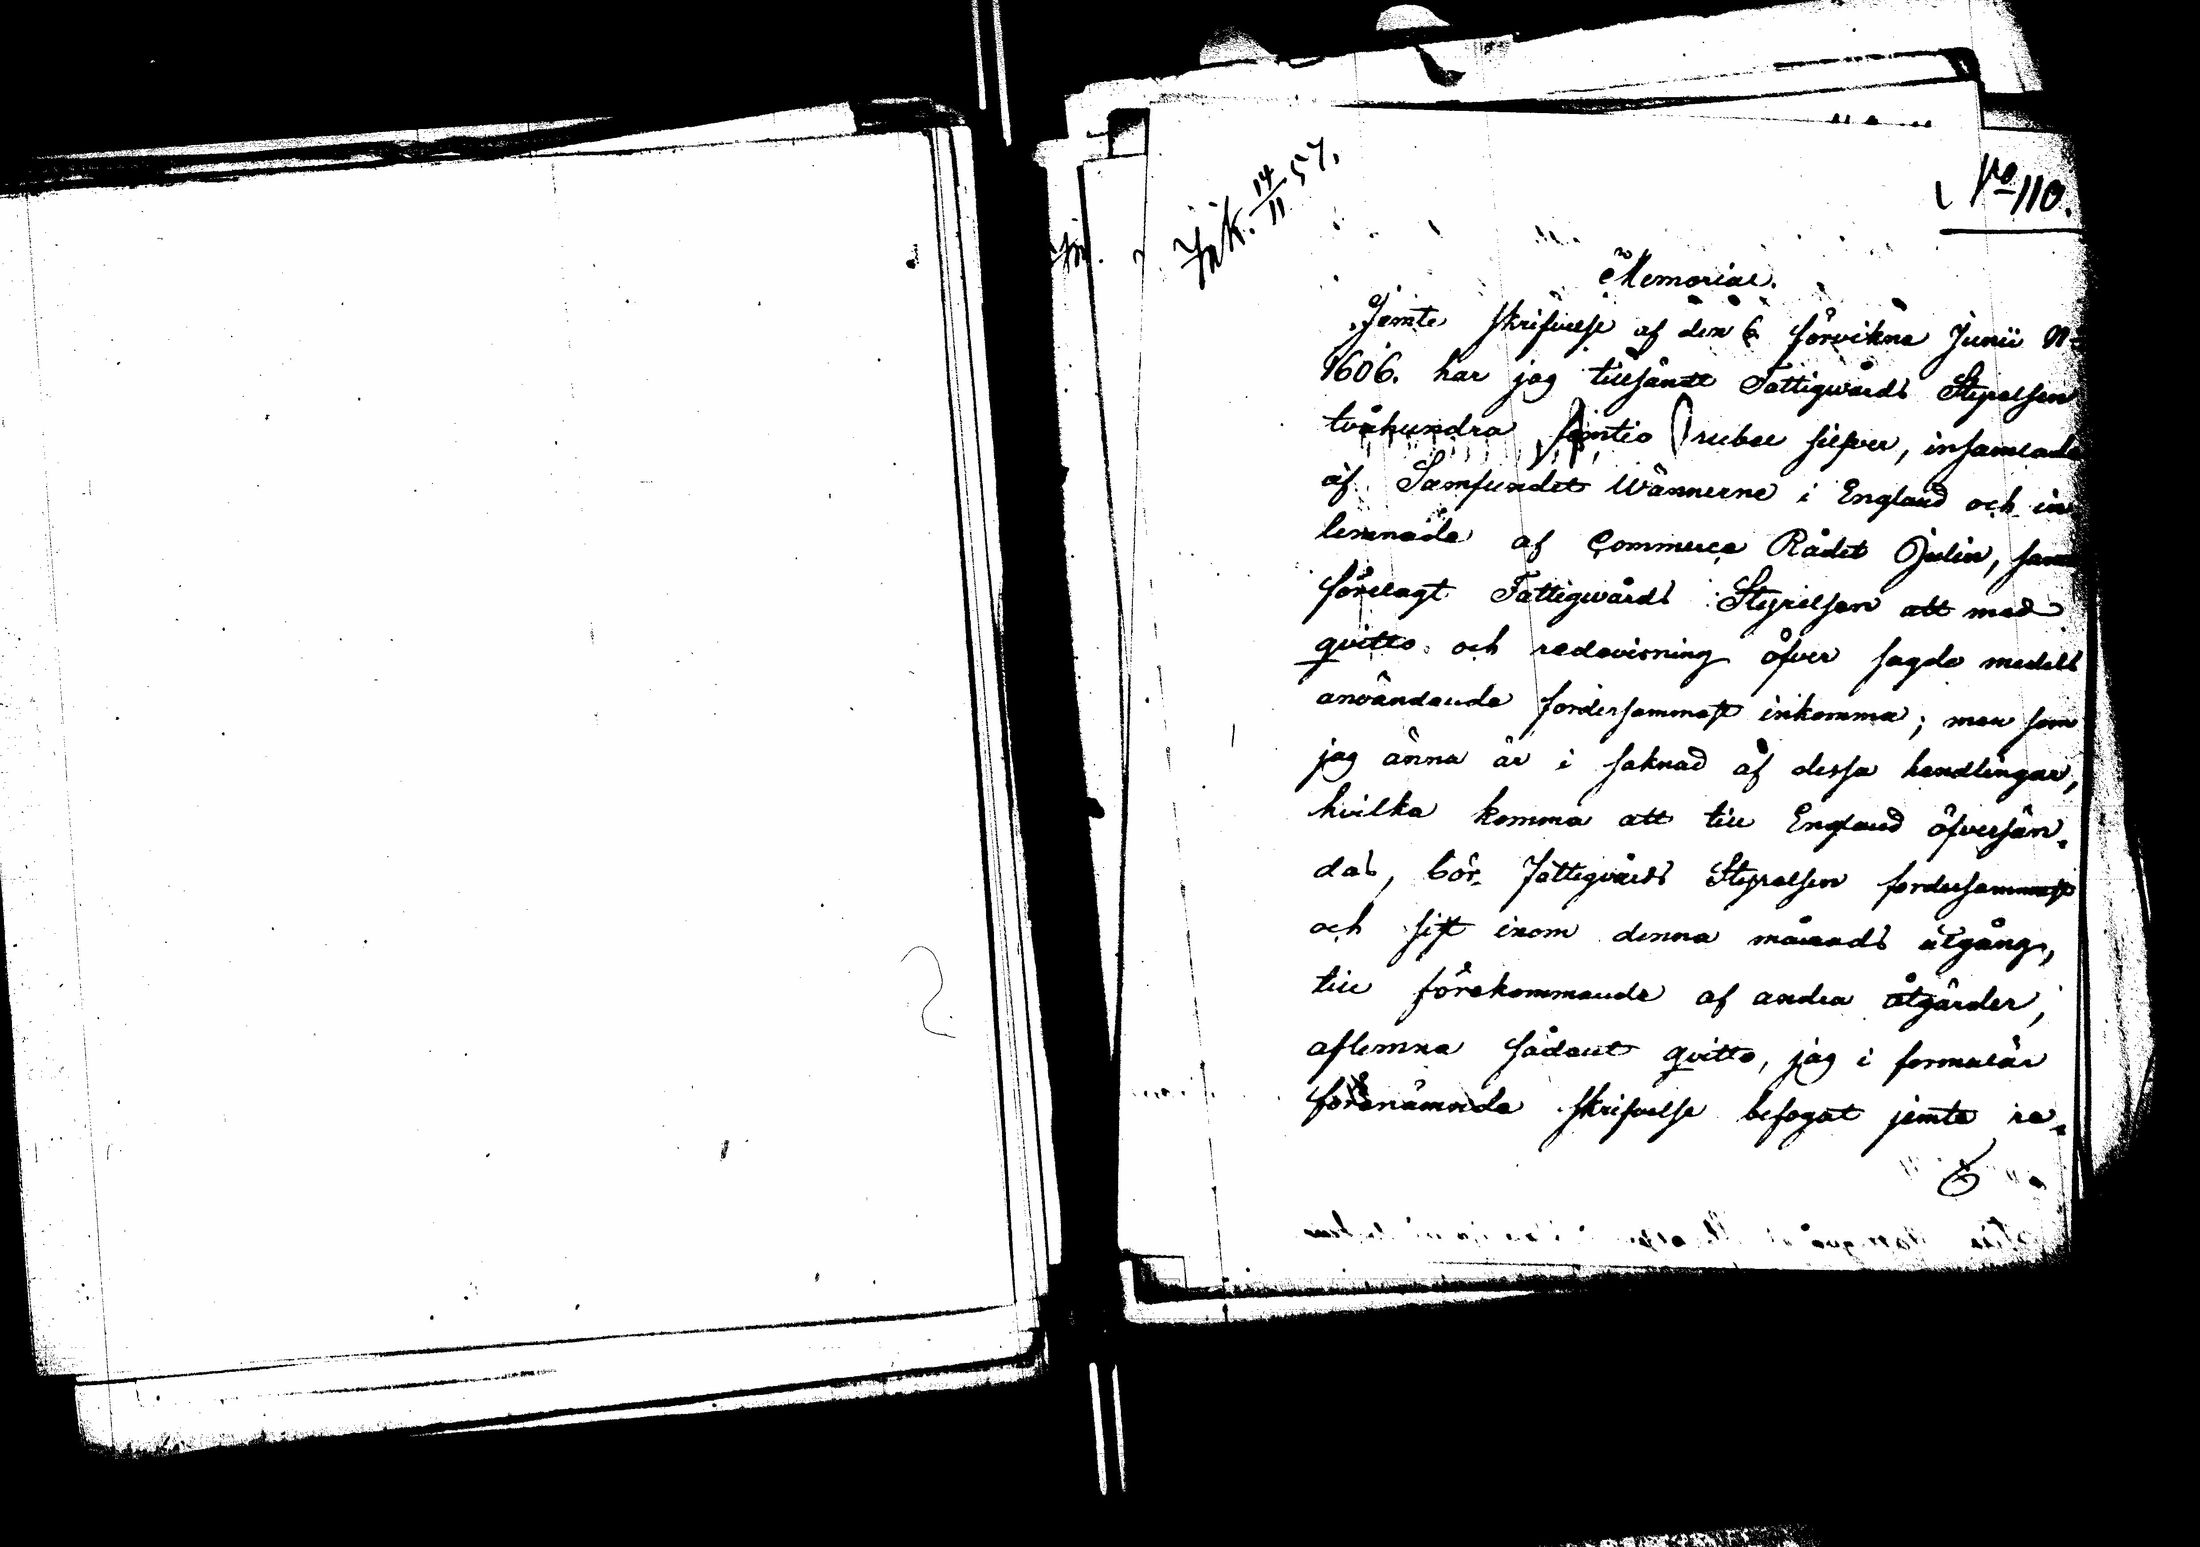 Ink. 14/11 57.
No 110.
Memorial.
Jemte skrifvelse af den 6 förvikne Junii No
1606. har jag tillsändt Fattigvårds Styrelsen
tvåhundra femtio rubel silfver, insamlade
af Samfundet Wännerne i England och in
lemnade af Commerce Rådet Julin, samt
förelagt Fattigvårds Styrelsen att med
qvitto och redovisning öfver sagde medels
användande fordersammast inkomma; men som
jag änna är i saknad af dessa handlingar,
hvilka komma att till England öfversän-
das, bör Fattigvårds Styrelsen fordersammast
och sist inom denna månads utgång,
till förekommande af andra åtgärder,
aflemna sådant qvitto, jag i formulär
förenämnde skrifvelse befogat jemte re-